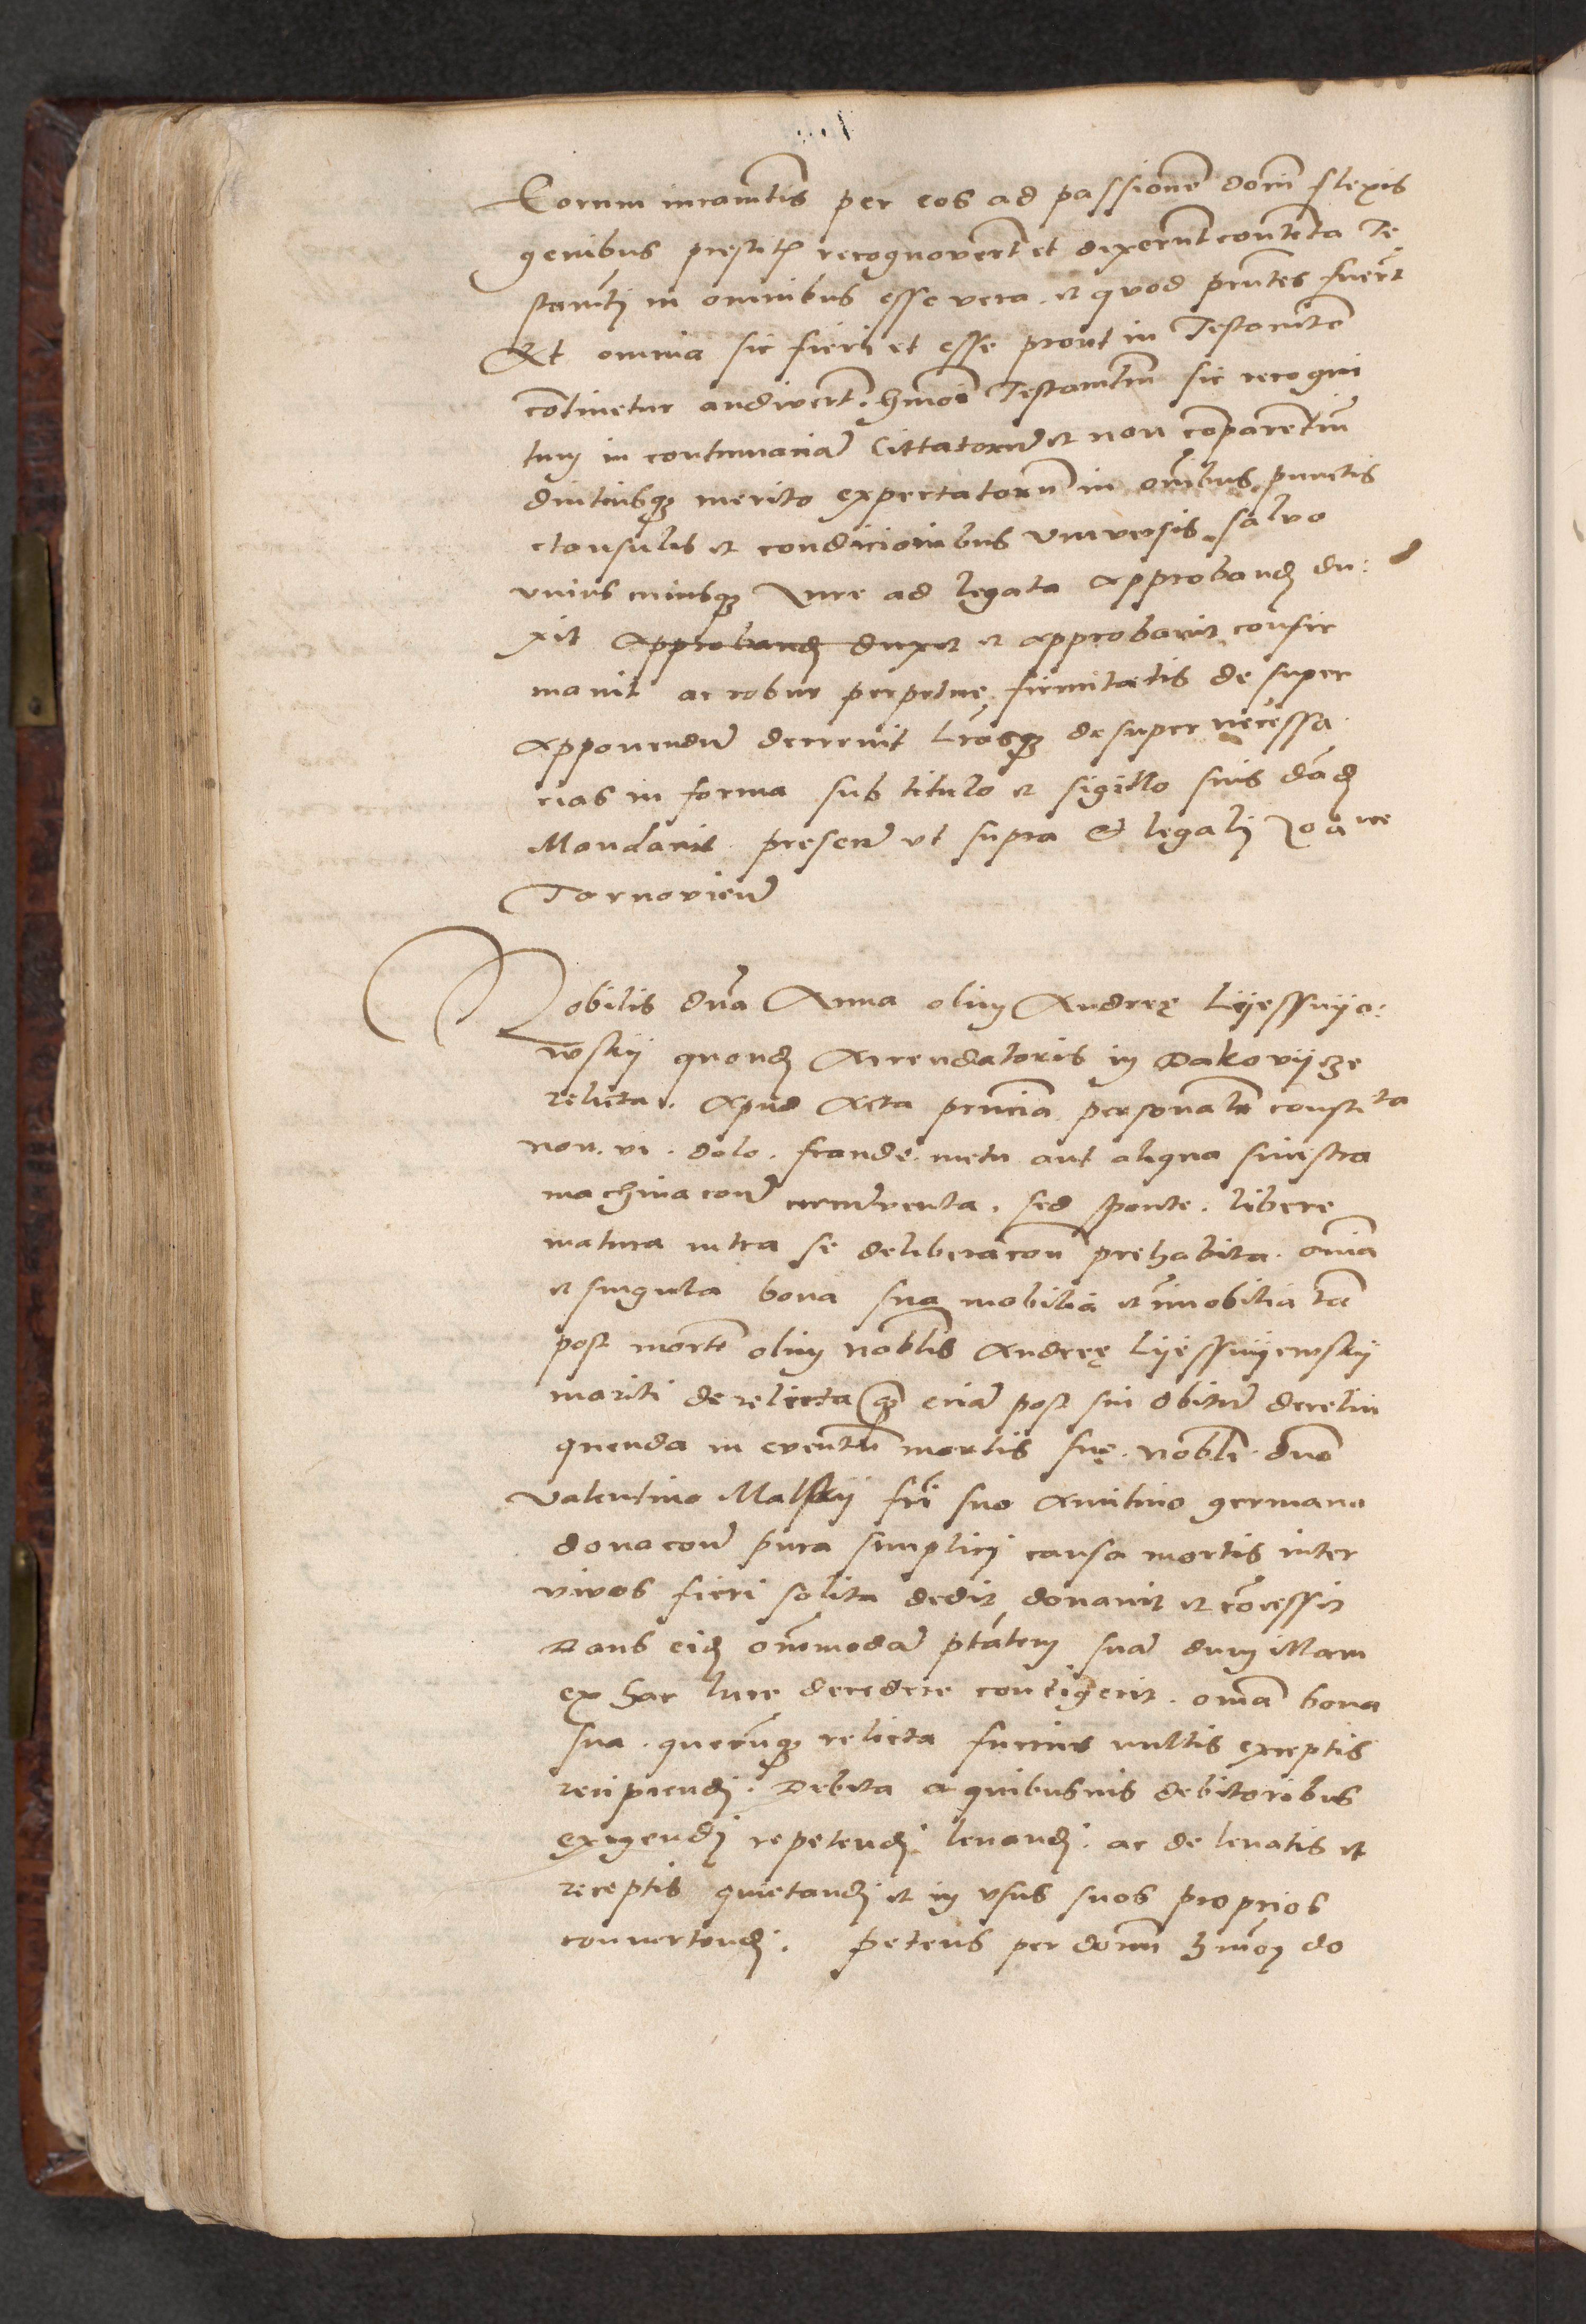 Eorum iuramtis per eos ad passionē domi flexis
genibus prestit recognovert et dixerunt contēta Te
stamti in omnibus esse vera. et quod prntes fuert
Et omnia sic fieri et esse prout in Testamto
cōtinetur audivert. hmoi Testamtum sic recogni
tum in contumaciā Cittatorū et non cōparentiū
diutiusq merito expectatorū in omibus punctis
clausulis et condicionibus vniversis. salvo
vnius cuiusq Iure ad legata approband du:
xit approband duxit et approbavit confir
mavit ac robur perpetuę firmitatis de super
apponendū decrevit lrasq desuper necessa
rias in forma sub titulo et sigillo suis dād
Mandavit presen vt supra et legali Ioāne
Tarnovien

Nobilis dna Anna olim Andreę Lyessnyo:
wsky quond Arrendatoris in Dakovycze
relicta. Apud Acta prncia personalr constita
non. vi. dolo. fraude. metu aut aliqua sinistra
machinacone circumventa. sed sponte. libere
matura intra se deliberacon prehabita. omia
et singula bona sua mobilia et īmobilia tā
post mortē olim nobilis Andreę Lyessnyewsky
mariti derelicta q eciā post sui obitū derelin
quenda in eventū mortis suę. nobli. dno
Valentino Malsky fri suo amitino germano
donacone pura simplici causa mortis inter
vivos fieri solita dedit donavit et cōcessit
Dans eid omimodā ptatem suā dum illam
ex hac luce decedere contigerit. omia bona
sua. quecūq relicta fuerint nullis exceptis
recipiendi. Debita a quibusvis debitoribus
exigendi repetendi levandi. ac de levatis et
receptis quietandi et in vsus suos proprios
convertendi. Petens per domi hmoi do